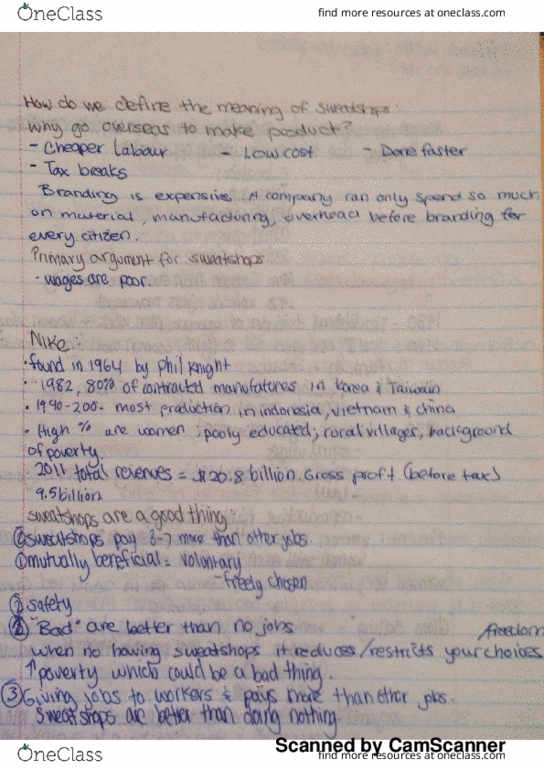 OneClass
find more resources at oneclass.com
How do we define the meaning of sweatshops:
why go overseas to make product?
- Cheaper Labour - Low cost - Done faster
- Tax breaks
Branding is expensive. A company can only spend so much
on material, manufacturing, overhead before branding for
every citizen.
Primary argument for sweatshops
- wages are poor.
Nike:
• found in 1964 by Phil Knight
• 1982, 80% of contracted manufatures in Korea & Taiwain
• 1990-200- most production in indonasia, vietnam & china
• High % are women; pooly educated; rural villages, background
of poverty
• 2011 total revenues = $20.8 billion. Gross profit (before tax)
9.5 billion
sweatshops are a good thing
sweatshops pay 3-7 more than other jobs.
① mutually beneficial = voluntary
- freely chosen
safety
② "Bad" are better than no jobs /freedom
when no having sweatshops it reduces/restricts your choices
↑ poverty which could be a bad thing.
③ Giving jobs to workers & pays more than other jobs.
Sweatshops are better than doing nothing
Scanned by CamScanner
OneClass
find more resources at oneclass.com